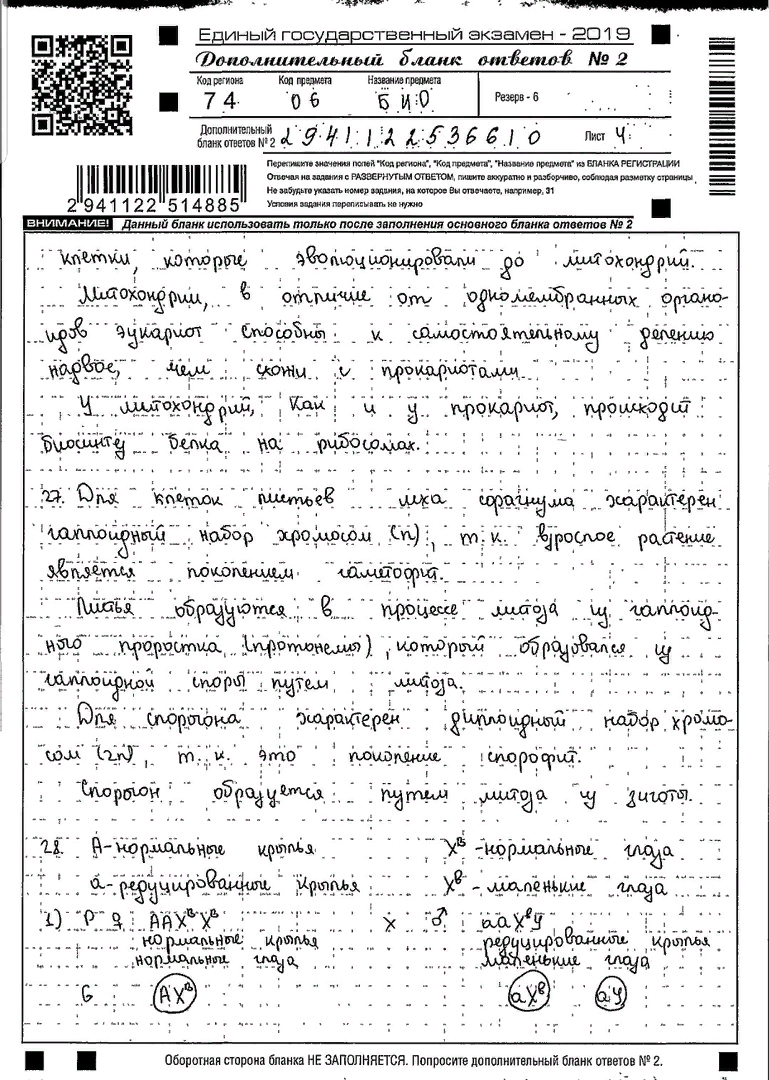 Единый государственный экзамен - 2019
Дополнительный бланк ответов № 2
Код региона Код предмета Название предмета
74 06 БИО Резерв - 6
Дополнительный бланк ответов № 2 2941122536610 Лист 4
Перепишите значения полей "Код региона", "Код предмета", "Название предмета" из БЛАНКА РЕГИСТРАЦИИ
Отвечая на задания с РАЗВЕРНУТЫМ ОТВЕТОМ, пишите аккуратно и разборчиво, соблюдая разметку страницы
Не забудьте указать номер задания, на которое Вы отвечаете, например, 31
Условия задания переписывать не нужно
2 941122 514885
ВНИМАНИЕ! Данный бланк использовать только после заполнения основного бланка ответов № 2
клетки, которые эволюционировали до митохондрий.
Митохондрии, в отличие от одномембранных органо-
идов эукариот способны к самостоятельному делению
надвое, чем схожи с прокариотами
У митохондрий, как и у прокариот, происходит
биосинтез белка на рибосомах.
27. Для клеток листьев мха сфагнума характерен
гаплоидный набор хромосом (n), т.к. взрослое растение
является поколением гаметофит.
Листья образуются в процессе митоза из гаплоид-
ного проростка (протонемы), который образовался из
гаплоидной споры путем митоза.
Для спорогона характерен диплоидный набор хромо-
сом (2n), т.к. это поколение спорофит.
Спорогон образуется путем митоза из зиготы.
28. А-нормальные крылья Xᴮ-нормальные глаза
а-редуцированные крылья Xᵇ-маленькие глаза
1) P ♀ AAXᴮXᴮ x ♂ aaXᵇY
нормальные крылья редуцированные крылья
нормальные глаза маленькие глаза
G AXᴮ aXᵇ aY
Оборотная сторона бланка НЕ ЗАПОЛНЯЕТСЯ. Попросите дополнительный бланк ответов № 2.